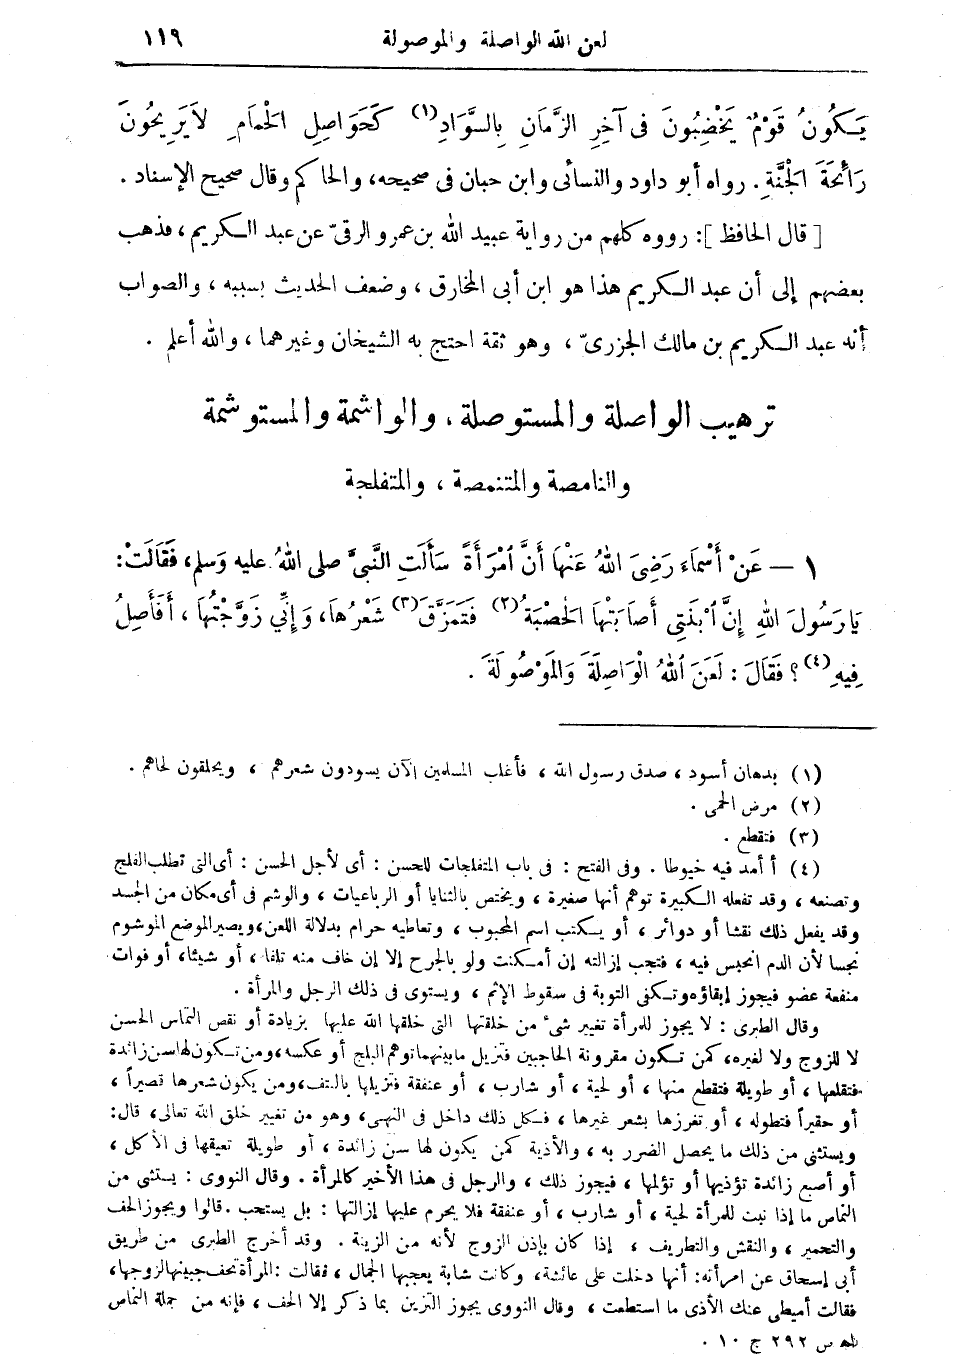 لعن الله الواصلة والموصولة ١١٩
يَكُونُ قَوْمٌ يَخْضِبُونَ فى آخِرِ الزَّمَانِ بِالسَّوَادِ(١) كَحَوَاصِلِ الْحَمَامِ لاَيَرِيحُونَ
رَائِحَةَ الْجَنَّةِ. رواه أبو داود والنسائى وابن حبان فى صحيحه، والحاكم وقال صحيح الإسناد.
[ قال الحافظ ]: رووه كلهم من رواية عبيد الله بن عمرو الرقىّ عن عبد الكريم، فذهب
بعضهم إلى أن عبد الكريم هذا هو ابن أبى المخارق، وضعف الحديث بسببه، والصواب
أنه عبد الكريم بن مالك الجزرىّ، وهو ثقة احتج به الشيخان وغيرهما، والله أعلم.
ترهيب الواصلة والمستوصلة، والواشمة والمستوشمة
والنامصة والمتنمصة، والمتفلجة
١ — عَنْ أَسْمَاءَ رَضِىَ اللهُ عَنْهَا أَنَّ امْرَأَةً سَأَلَتِ النَّبِىَّ صلى اللهُ عليه وَسلم، فَقَالَتْ:
يَارَسُولَ اللهِ إِنَّ ابْنَتِى أَصَابَتْهَا الْحَصْبَةُ(٢) فَتَمَزَّقَ(٣) شَعْرُهَا، وَإِنِّي زَوَّجْتُهَا، أَفَأَصِلُ
فِيهِ(٤)؟ فَقَالَ: لَعَنَ اللهُ الْوَاصِلَةَ وَالمَوْصُولَةَ.
(١) بدهان أسود، صدق رسول الله، فأغلب المسلمين الآن يسودون شعرهم، ويحلقون لحاهم.
(٢) مرض الحمى.
(٣) فتقطع.
(٤) أ أمد فيه خيوطا. وفى الفتح: فى باب المتفلجات للحسن: أى لأجل الحسن: أى التى تطلب الفلج
وتصنعه، وقد تفعله الكبيرة توهم أنها صغيرة، ويختص بالثنايا أو الرباعيات، والوشم فى أى مكان من الجسد
وقد يفعل ذلك نقشا أو دوائر، أو يكتب اسم المحبوب، وتعاطيه حرام بدلالة اللعن، ويصير الموضع الموشوم
نجسا لأن الدم انحبس فيه، فتجب إزالته إن أمكنت ولو بالجرح إلا إن خاف منه تلفا، أو شيئا، أو فوات
منفعة عضو فيجوز إبقاؤه وتكفى التوبة فى سقوط الإثم، ويستوى فى ذلك الرجل والمرأة.
وقال الطبرى: لا يجوز للمرأة تغيير شىء من خلقتها التى خلقها الله عليها بزيادة أو نقص التماس الحسن
لا للزوج ولا لغيره، كمن تكون مقرونة الحاجبين فتزيل ما بينهما توهم البلج أو عكسه، ومن تكون لها سن زائدة
فتقلعها، أو طويلة فتقطع منها، أو لحية، أو شارب، أو عنفقة فتزيلها بالنتف، ومن يكون شعرها قصيراً،
أو حقيراً فتطوله، أو تغرزها بشعر غيرها، فكل ذلك داخل فى النهى، وهو من تغيير خلق الله تعالى، قال:
ويستثنى من ذلك ما يحصل الضرر به، والأذية كمن يكون لها سن زائدة، أو طويلة تعيقها فى الأكل،
أو أصبع زائدة تؤذيها أو تؤلمها، فيجوز ذلك، والرجل فى هذا الأخير كالمرأة. وقال النووى: يستثنى من
النماص ما إذا نبت للمرأة لحية، أو شارب، أو عنفقة فلا يحرم عليها إزالتها: بل يستحب. قالوا ويجوز الحف
والتحمير، والنقش والتطريف، إذا كان بإذن الزوج لأنه من الزينة. وقد أخرج الطبرى من طريق
أبى إسحاق عن امرأته: أنها دخلت على عائشة، وكانت شابة يعجبها الجمال، فقالت: المرأة تحف جبينها لزوجها،
فقالت أميطى عنك الأذى ما استطعت، وقال النووى يجوز التزين بما ذكر إلا الحف، فإنه من جملة النماص
اهـ ص ٢٩٢ ج ١٠.